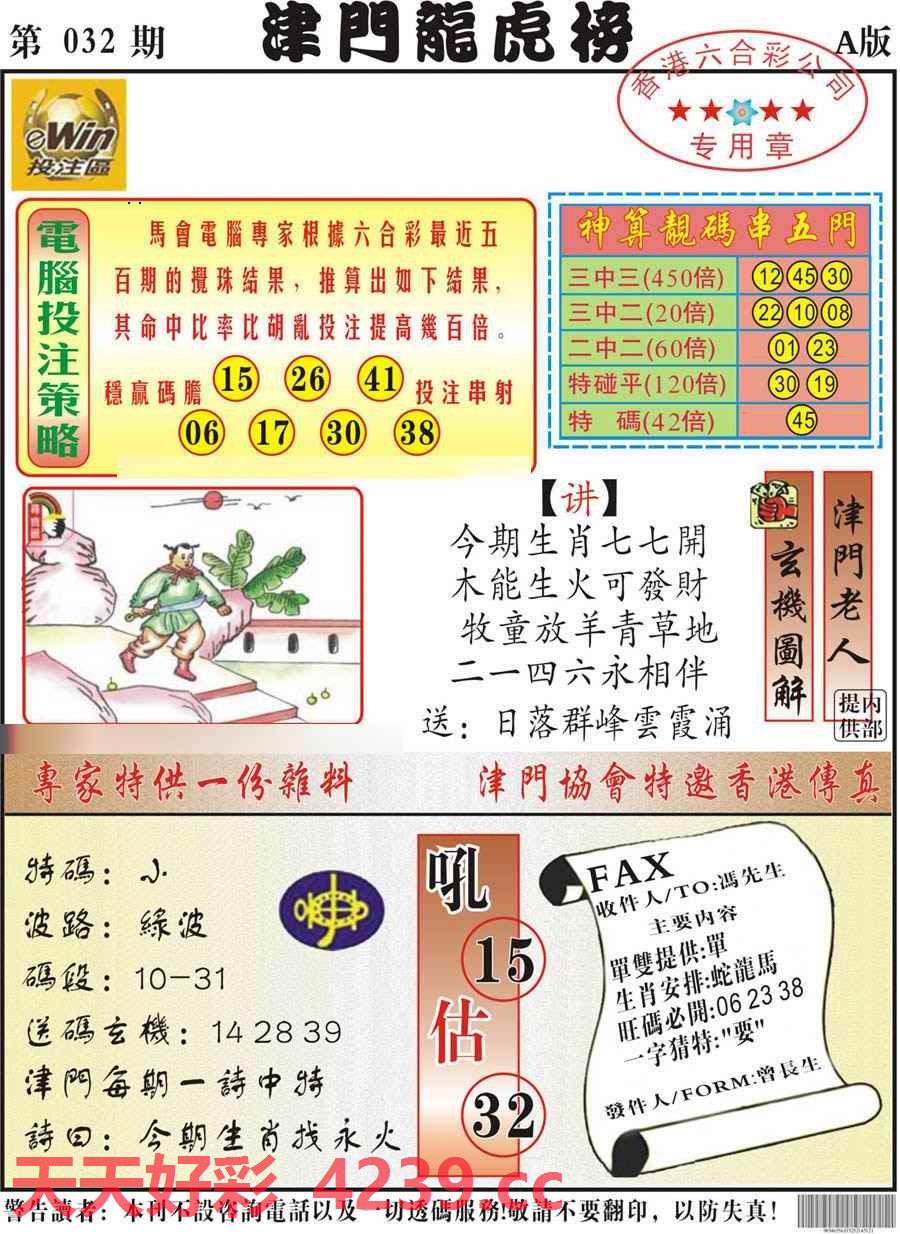 第 032 期
津門龍虎榜
A版
香港六合彩公司
专用章
eWin
投注區
電腦投注策略
馬會電腦專家根據六合彩最近五
百期的攪珠結果，推算出如下結果，
其命中比率比胡亂投注提高幾百倍。
穩贏碼膽 15 26 41 投注串射
06 17 30 38
神算靚碼串五門
三中三(450倍) 12 45 30
三中二(20倍) 22 10 08
二中二(60倍) 01 23
特碰平(120倍) 30 19
特 碼(42倍) 45
【讲】
今期生肖七七開
木能生火可發財
牧童放羊青草地
二一四六永相伴
送：日落群峰雲霞涌
玄機圖解
津門老人
内部提供
專家特供一份雜料
津門協會特邀香港傳真
特碼：小
波路：綠波
碼段：10-31
送碼玄機：14 28 39
津門每期一詩中特
詩曰：今期生肖找永火
吼
15
估
32
FAX
收件人/TO:馮先生
主要内容
單雙提供:單
生肖安排:蛇龍馬
旺碼必開:06 23 38
一字猜特:"要"
發件人/FORM:曾長生
天天好彩 4239.cc
警告讀者：本刊不設咨詢電話以及一切透碼服務!敬請不要翻印，以防失真!